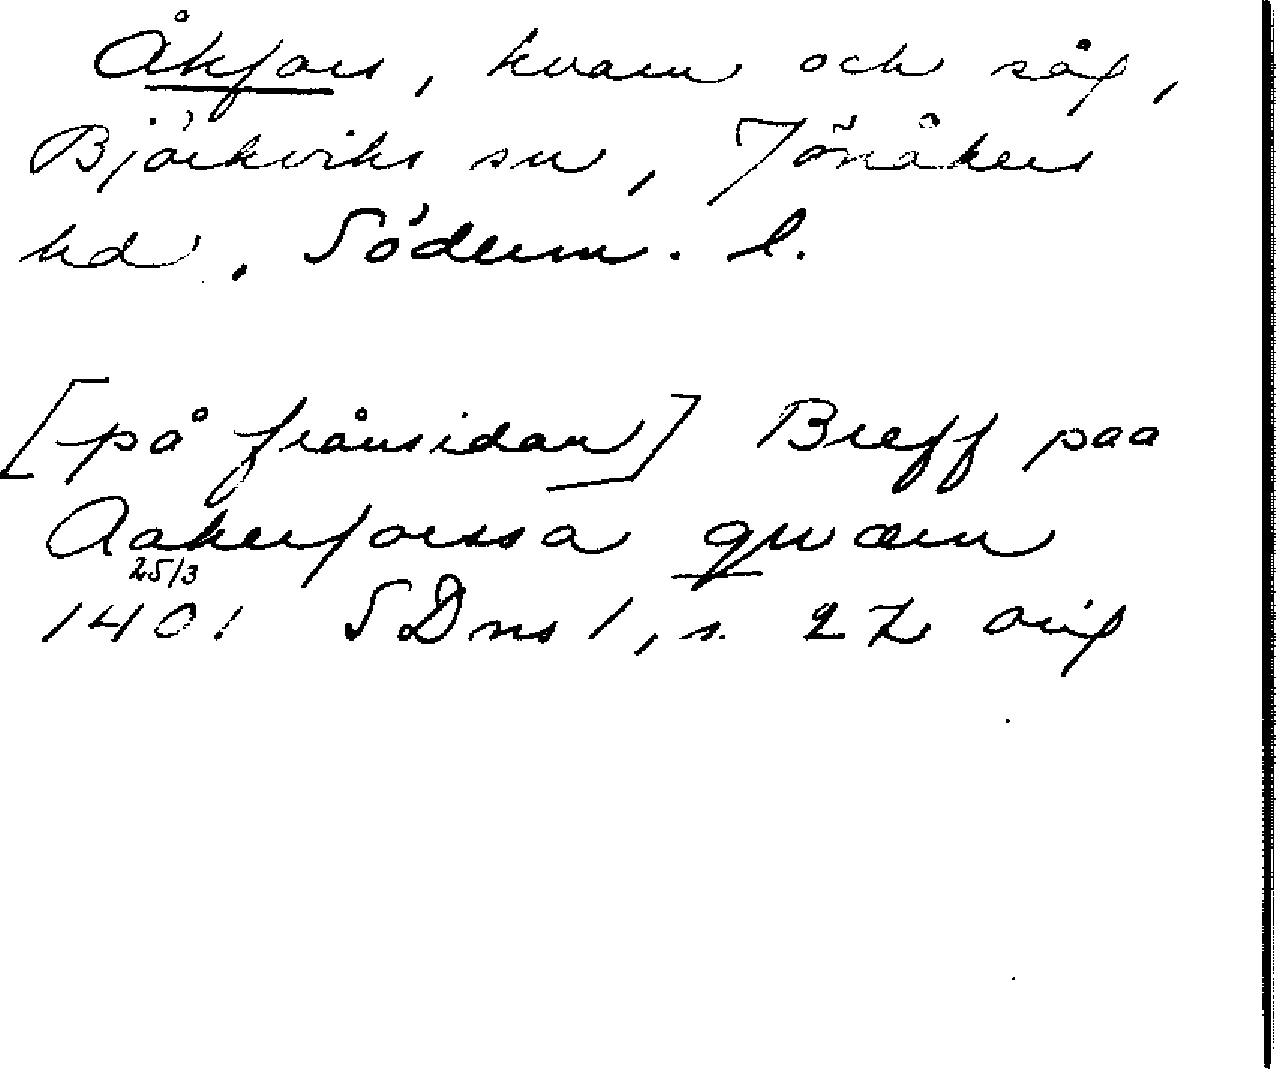 Åkfors, kvarn och såg,
Björkviks sn, Jönåkers
hd, Söderm. l.
[på frånsidan] Breff paa
Aakerforssa qwærn
25/3
1401 SDns 1, s. 27 orig